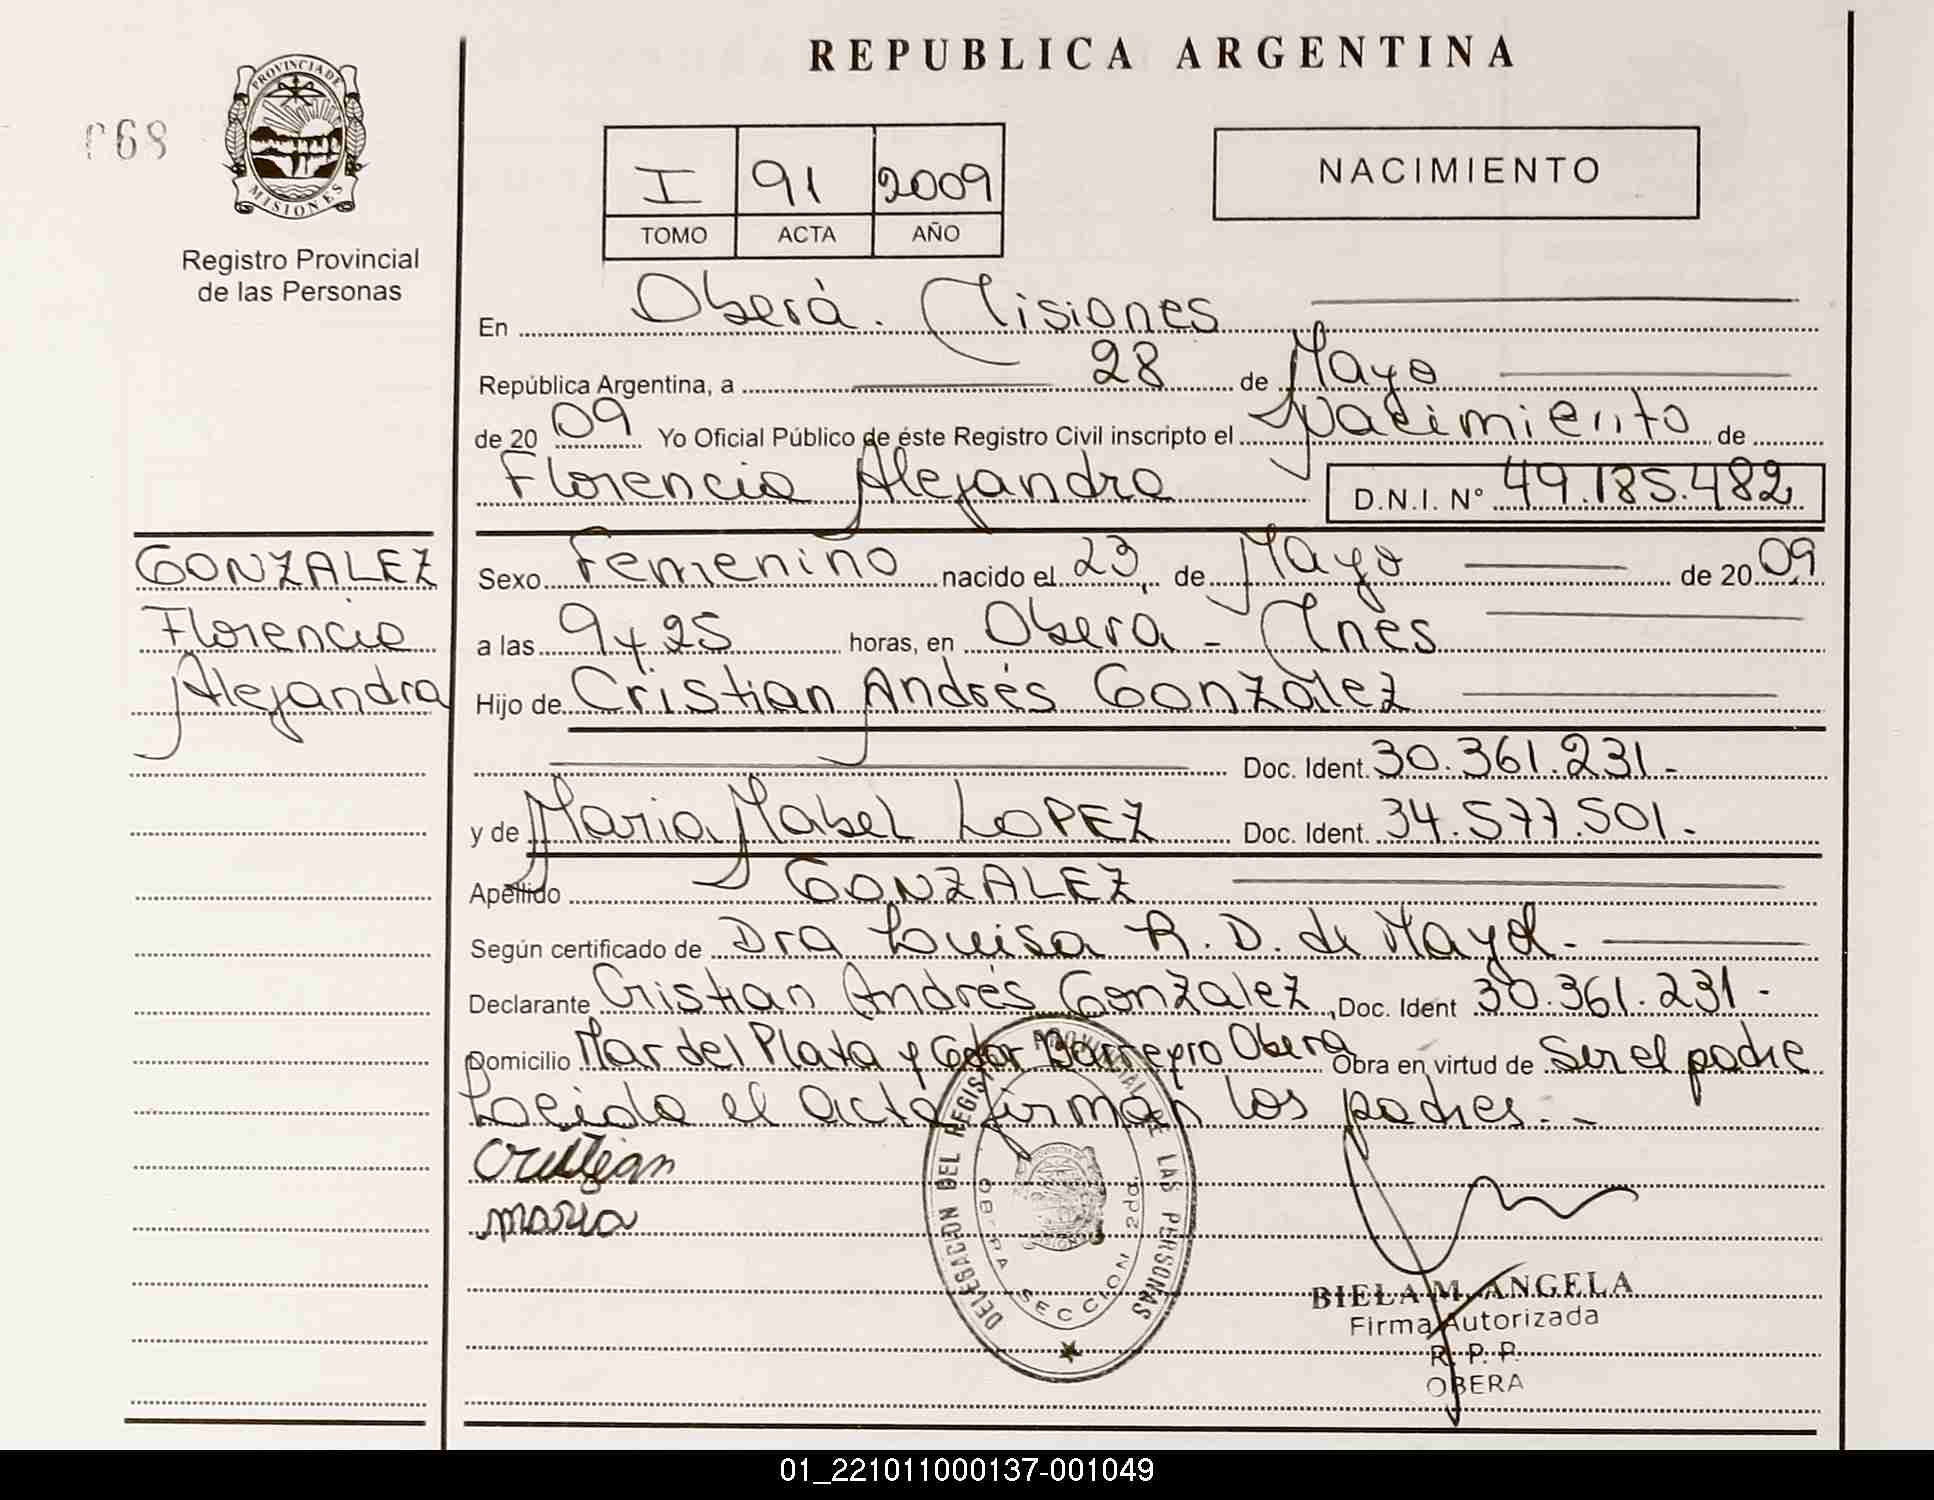 REPUBLICA ARGENTINA
PROVINCIA DE
MISIONES
068
Registro Provincial
de las Personas
I 91 2009
TOMO ACTA AÑO
NACIMIENTO
En Oberá. Misiones
República Argentina, a 28 de Mayo
de 2009 Yo Oficial Público de éste Registro Civil inscripto el Nacimiento de
Florencia Alejandra D.N.I. Nº 49.185.482
GONZALEZ
Florencia
Alejandra
Sexo Femenino nacido el 23 de Mayo de 2009
a las 9 y 25 horas, en Oberá - Mnes
Hijo de Cristian Andrés González
Doc. Ident. 30.361.231.-
y de Maria Mabel LOPEZ Doc. Ident. 34.577.501.-
Apellido GONZALEZ
Según certificado de Dra Louisa R. D. de Mayol.-
Declarante Cristian Andrés Gonzalez, Doc. Ident 30.361.231.-
Domicilio Mar del Plata y Barreyro Oberá Obra en virtud de Ser el padre
Leida el acta firman los padres.-
Cristian
maria
DELEGACION DEL REGISTRO PROVINCIAL DE LAS PERSONAS
OBERA SECCION 2da.
BIELA M. ANGELA
Firma Autorizada
R. P. P.
OBERA
01_221011000137-001049